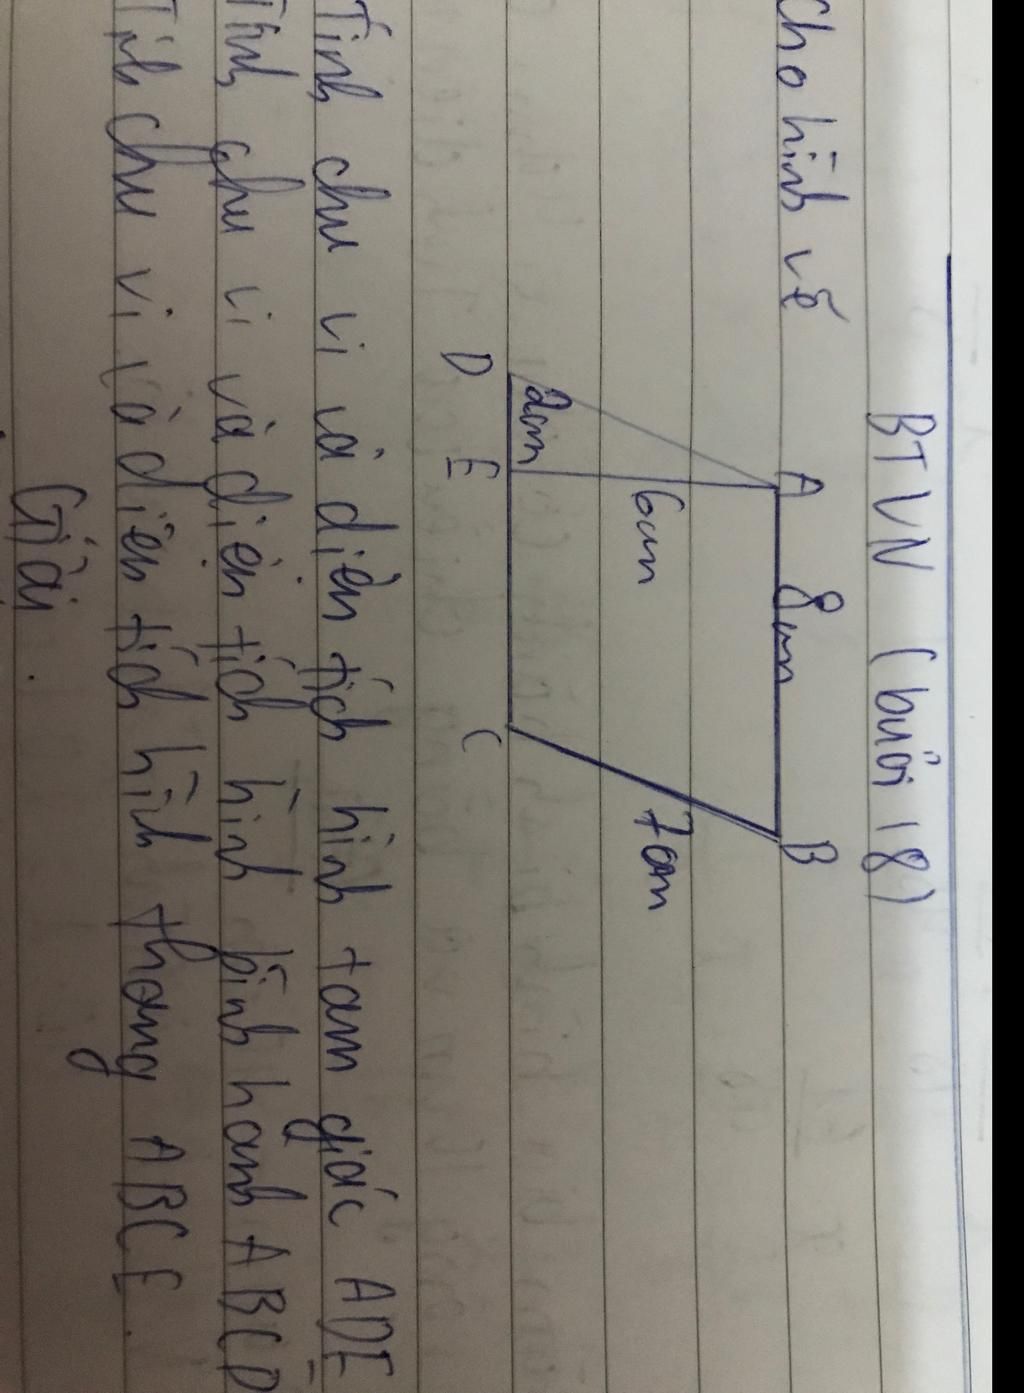 BTVN (buổi 18)
Cho hình vẽ
A 8cm B
6cm 7cm
2cm
D E C
Tính chu vi và diện tích hình tam giác ADE
Tính chu vi và diện tích hình bình hành ABCD
Tính chu vi và diện tích hình thang ABCE.
Giải.